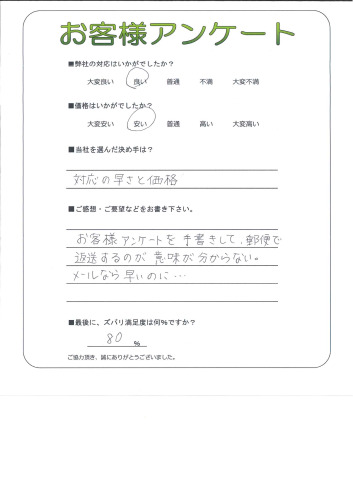 お客様アンケート
■弊社の対応はいかがでしたか?
大変良い 良い 普通 不満 大変不満
■価格はいかがでしたか?
大変安い 安い 普通 高い 大変高い
■当社を選んだ決め手は?
対応の早さと価格
■ご感想・ご要望などをお書き下さい。
お客様アンケートを手書きして、郵便で
返送するのが意味が分からない。
メールなら早いのに…
■最後に、ズバリ満足度は何%ですか?
80 %
ご協力頂き、誠にありがとうございました。